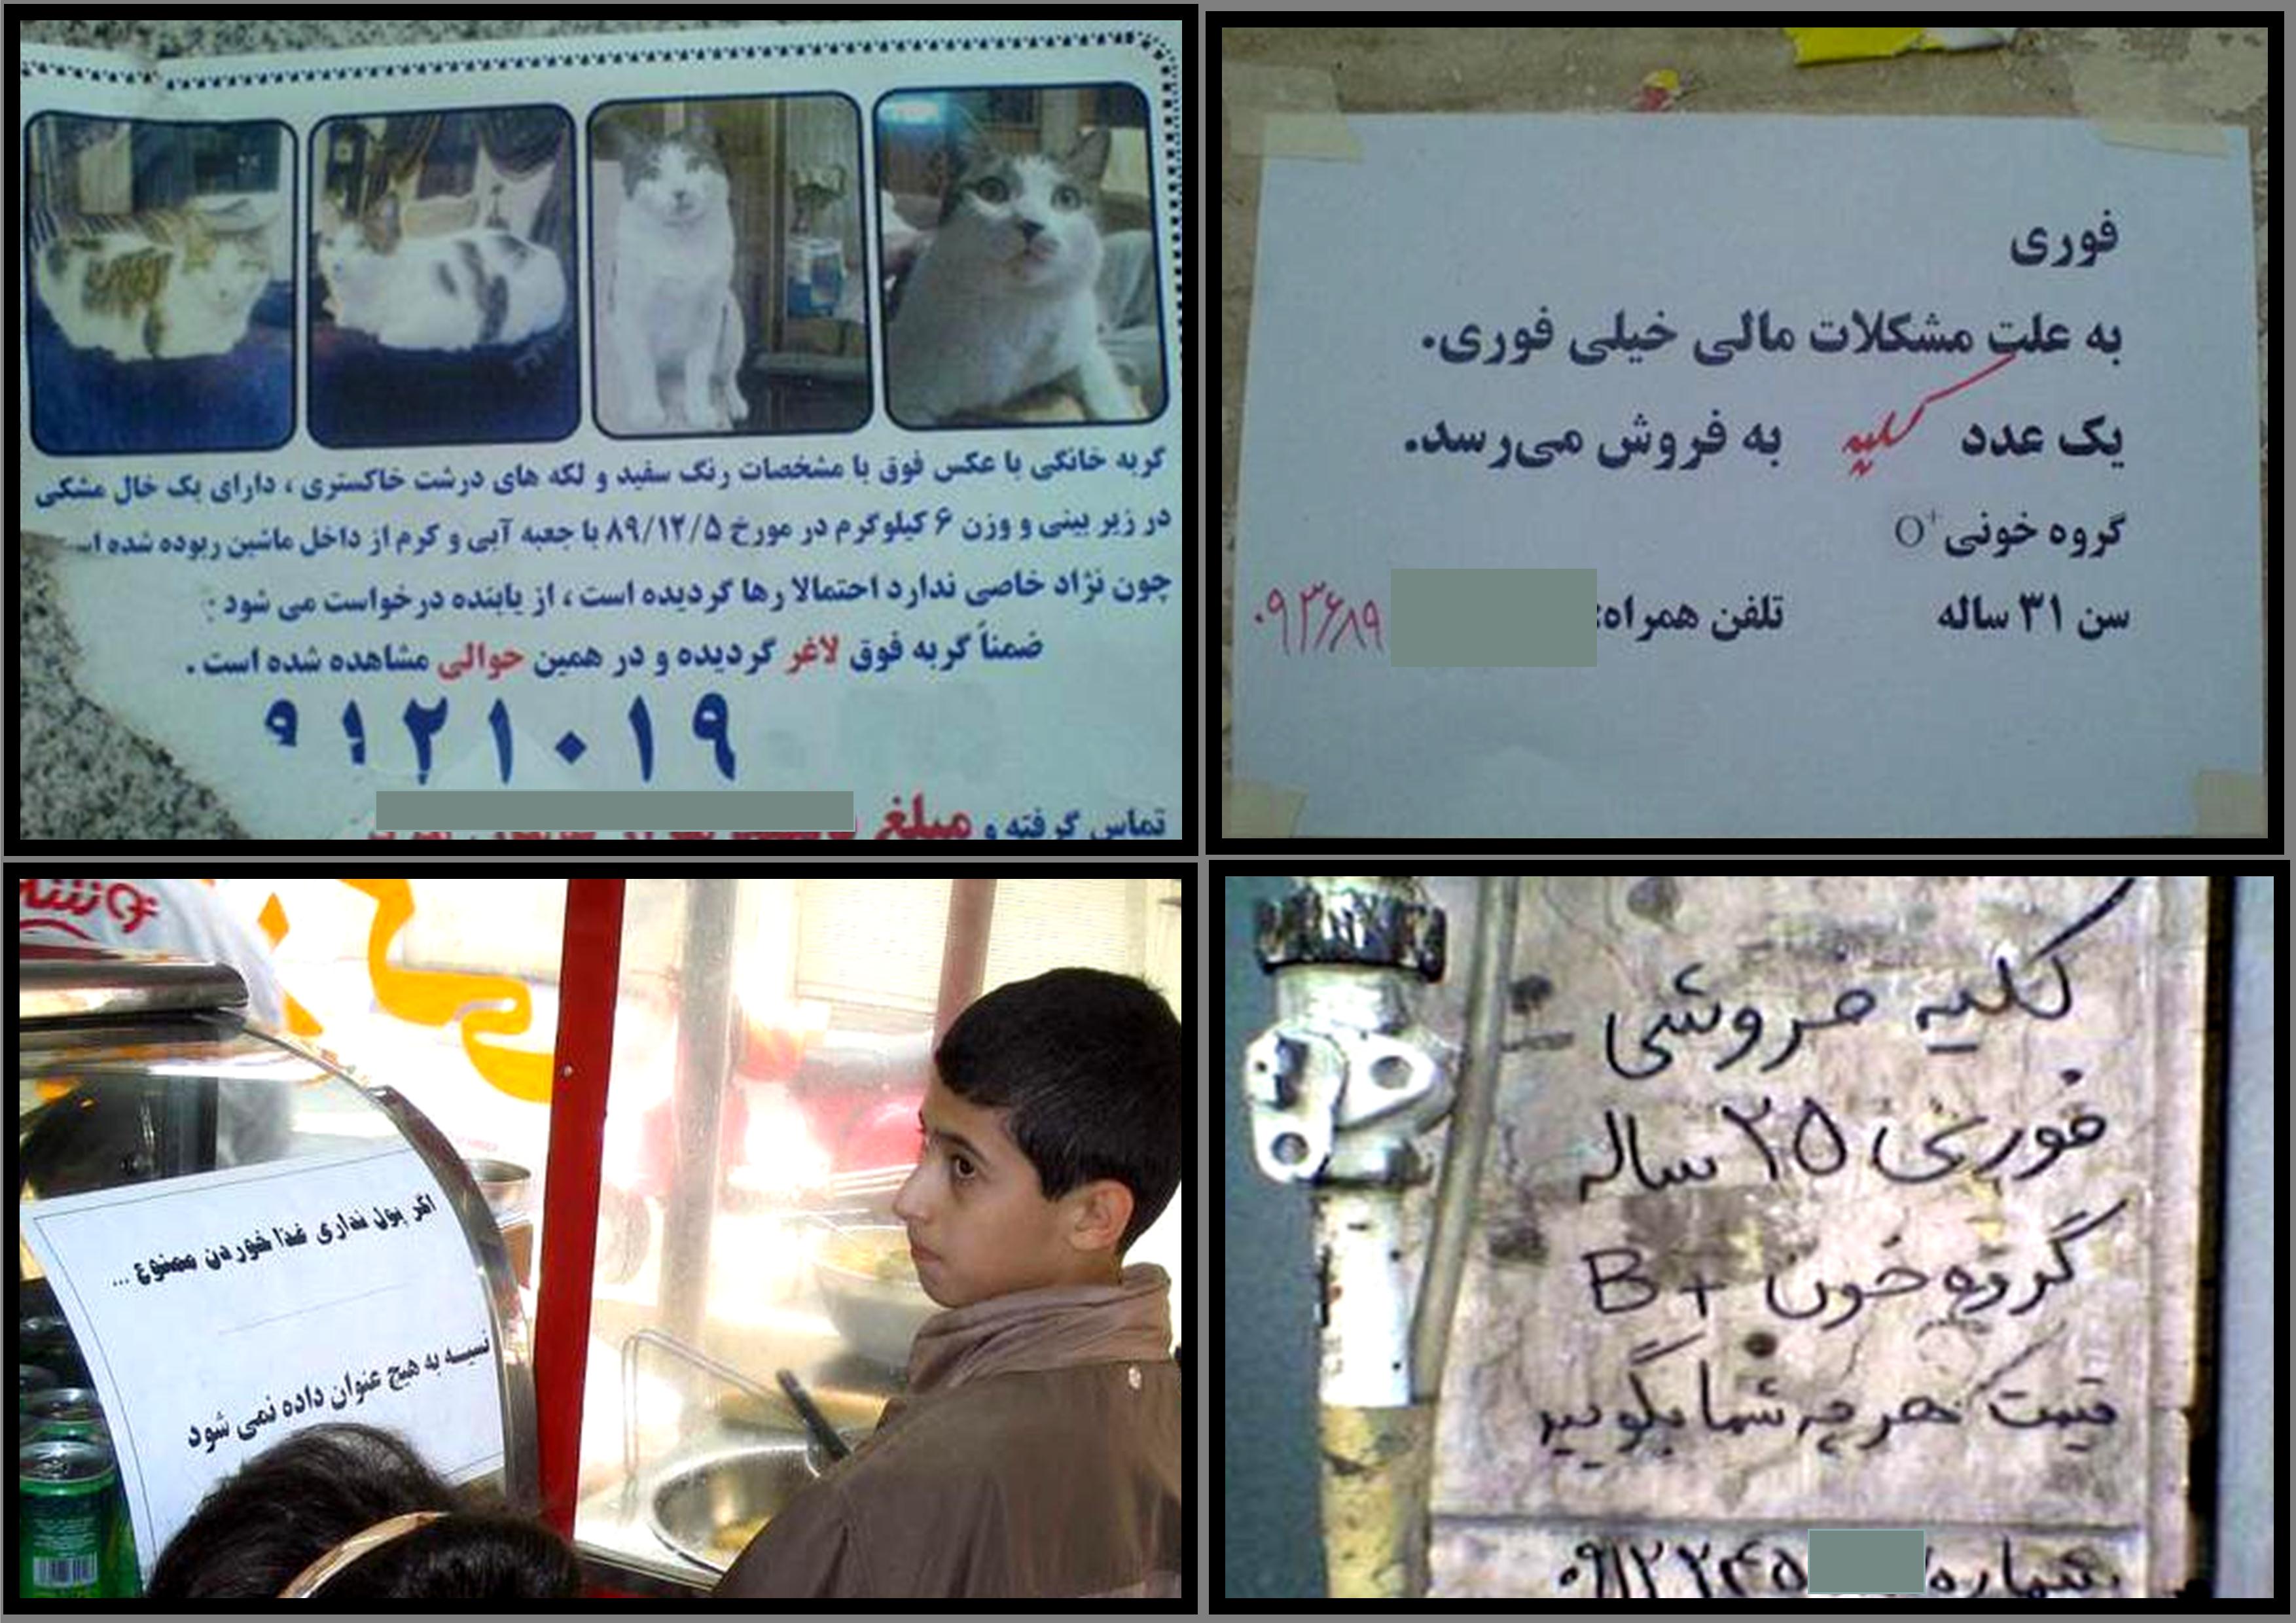 گربه خانگی با عکس فوق با مشخصات رنگ سفید و لکه های درشت خاکستری ، دارای یک خال مشکی
در زیر بینی و وزن ۶ کیلوگرم در مورخ ۸۹/۱۲/۵ با جعبه آبی و کرم از داخل ماشین ربوده شده
چون نژاد خاصی ندارد احتمالا رها گردیده است ، از یابنده درخواست می شود :
ضمناً گربه فوق لاغر گردیده و در همین حوالی مشاهده شده است .
۹۱۲۱۰۱۹
تماس گرفته و مبلغ
فوری
به علت مشکلات مالی خیلی فوری.
یک عدد کلیه به فروش می‌رسد.
گروه خونی O+
سن ۳۱ ساله تلفن همراه: ۰۹۳۶۸۹
اگر پول نداری غذا خوردن ممنوع ...
نسیه به هیچ عنوان داده نمی شود
کلیه فروشی
فوری ۲۵ ساله
گروه خون B+
قیمت هر چه شما بگویید
شماره ۰۹۱۲۲۴۵